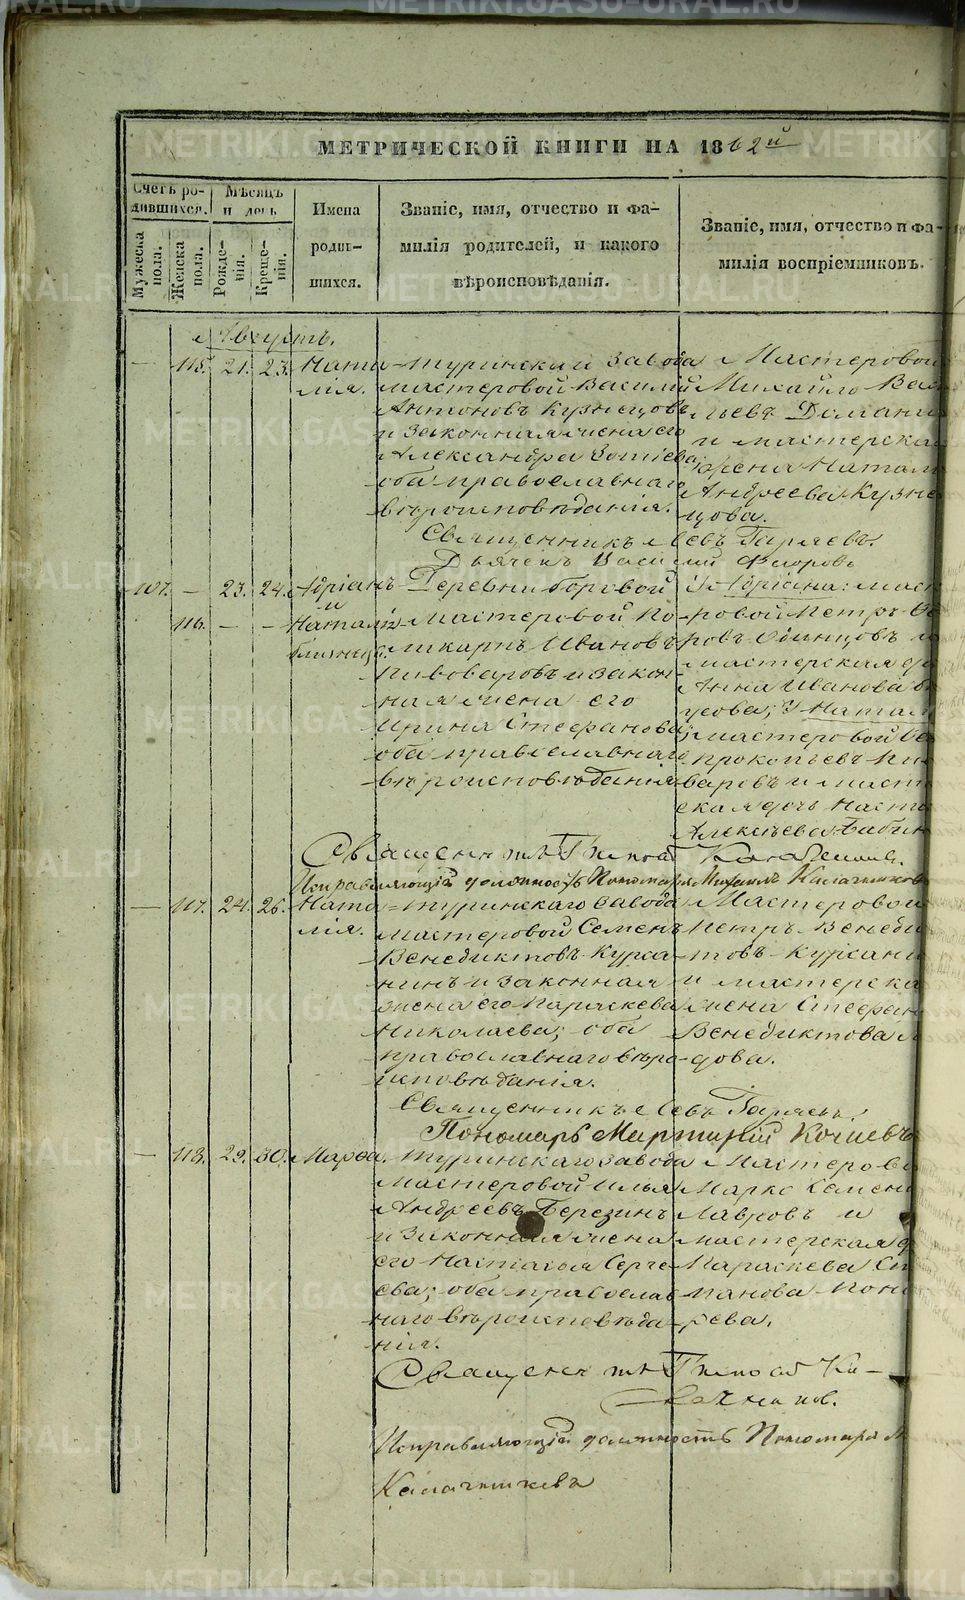 МЕТРИЧЕСКОЙ КНИГИ НА 1862й
Счетъ ро-
дившихся.
Мѣсяцъ
и день
Мужеска
пола.
Женска
пола.
Рожде-
нія.
Креще-
нія.
Имена
родив-
шихся.
Званіе, имя, отчество и фа-
милія родителей, и какого
вѣроисповѣданія.
Званіе, имя, отчество и фа-
милія воспріемниковъ.
Августъ.
— 115. 21. 23. Ната-
лія.
Туринскаго завода
мастеровой Василій
Антоновъ Кузнецовъ
и законная жена его
Александра Зотіева;
оба православнаго
вѣроисповѣданія.
Мастеровой
Михайло Вас
льевъ
и мастерская
жена Натал
Андреева Кузне
цова.
Священникъ Левъ Гаряевъ.
Дьячекъ Василій Флоровъ
107. — 23. 24. Адріанъ
и
116. — — Наталія
близнецы.
Деревни Боровой
мастеровой По-
ликарпъ Ивановъ
Пивоваровъ и закон-
ная жена его
Ирина Стефанова;
оба православнаго
вѣроисповѣданія
У Адріана: маст
ровой Петръ Ѳе
ровъ Одинцовъ и
мастерская до
Анна Иванова
усова; У Натал
мастеровой
Прокопьевъ Пи
варовъ и маст
ская дочь Наст
Алексѣева Бабин
Священникъ
Исправляющій должность Пономаря Михаилъ Калачниковъ
— 117. 24. 26. Ната-
лія.
Туринскаго завода
мастеровой Семенъ
Венедиктовъ Курса
нинъ и законная
жена его Параскева
Николаева; оба
православнаго вѣро-
исповѣданія.
Мастеровой
Петръ Венеди
товъ Курсанин
и мастерска
жена Стефан
Венедиктова
дова.
Священникъ Левъ Гаряевъ.
Пономарь Мартирій Кочневъ
— 118. 29. 30. Марѳа.
Туринскаго завода
мастеровой Илья
Андреевъ Березинъ
и законная жена
его Настасья Серге
ева; оба православ
наго вѣроисповѣда
нія.
Мастерово
Марко Семен
Лавровъ и
мастерская д
Параскева Ст
панова Поно
рева.
Священникъ
Исправляющій должность Пономаря М
Калачниковъ